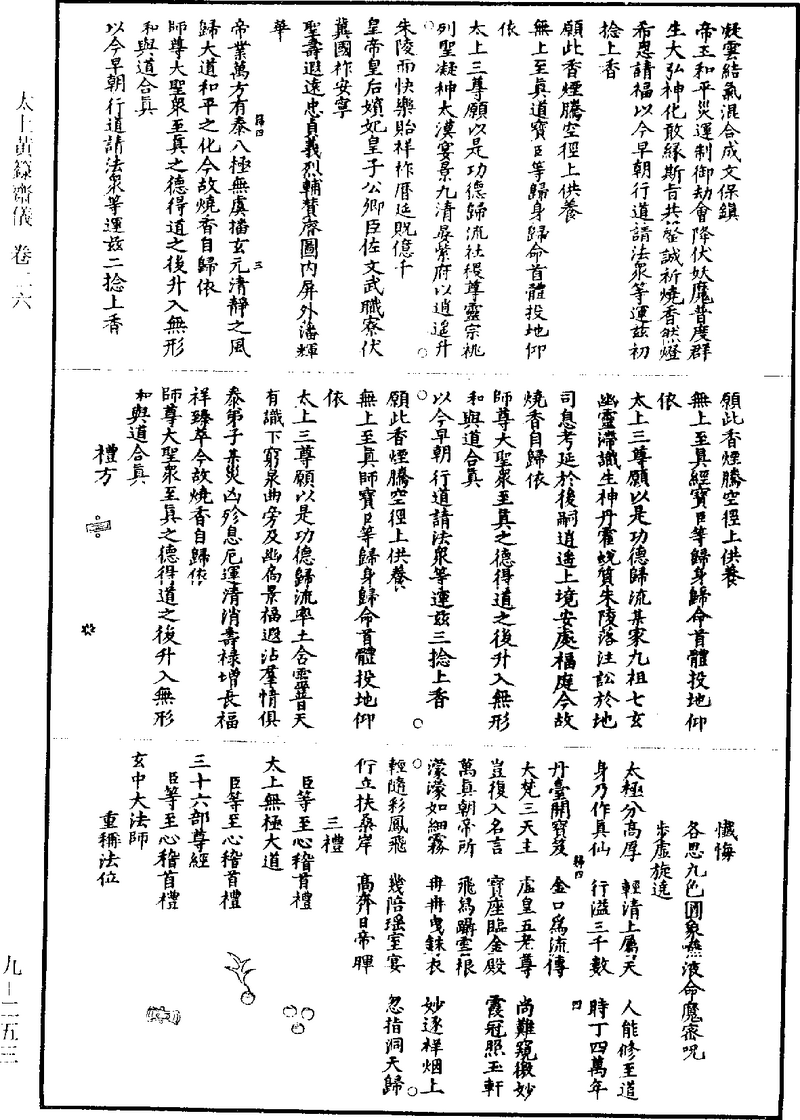 凝雲結氣混合成文保鎮
帝王和平災運制御劫會降伏妖魔普度群
生大弘神化敢緣斯旨共罄誠祈燒香然燈
希恩請福以今早朝行道請法衆等運茲初
捻上香
願此香煙騰空徑上供養
無上至眞道寶臣等歸身歸命首體投地仰
依
太上三尊願以是功德歸流社稷尊靈宗祧
列聖凝神太漠宴景九清扆紫府以逍遙升
朱陵而快樂貽祥祚曆延貺億千
皇帝皇后嬪妃皇子公卿臣佐文武職寮伏
冀國祚安寧
聖壽遐遠忠貞義烈輔贊齊圖内屏外藩輝
華
帝業萬方有泰八極無虞播玄元清靜之風
歸大道和平之化今故燒香自歸依
師尊大聖衆至眞之德得道之後升入無形
和與道合眞
以今早朝行道請法衆等運茲二捻上香
願此香煙騰空徑上供養
無上至眞經寶臣等歸身歸命首體投地仰
依
太上三尊願以是功德歸流某家九祖七玄
幽靈滯識生神丹霍蛻質朱陵落注訟於地
司息考延於後嗣逍遙上境安處福庭今故
燒香自歸依
師尊大聖衆至眞之德得道之後升入無形
和與道合眞
以今早朝行道請法衆等運茲三捻上香
願此香煙騰空徑上供養
無上至眞師寶臣等歸身歸命首體投地仰
依
太上三尊願以是功德歸流率土含靈普天
有識下窮泉曲旁及幽扃景福遐沾羣情俱
泰弟子某災凶殄息厄運清消壽祿增長福
祥臻萃今故燒香自歸依
師尊大聖衆至眞之德得道之後升入無形
和與道合眞
禮方
懺悔
各思九色圓象嚥液命魔密呪
步虛旋遶
太極分高厚 輕清上屬天 人能修至道
身乃作眞仙 行溢三千數 時丁四萬年
丹臺開寶笈 金口爲流傳
大梵三天主 虛皇五老尊 尚難窺微妙
豈復入名言 寶座臨金殿 霞冠照玉軒
萬眞朝帝所 飛舄躡雲根
濛濛如細霧 冉冉曳銖衣 妙逐祥烟上
輕隨彩鳳飛 幾陪瑶室宴 忽指洞天歸
佇立扶桑岸 高奔日帝暉
三禮
臣等至心稽首禮
太上無極大道
臣等至心稽首禮
三十六部尊經
臣等至心稽首禮
玄中大法師
重稱法位
太上黃籙齋儀 卷二六
九－二五三